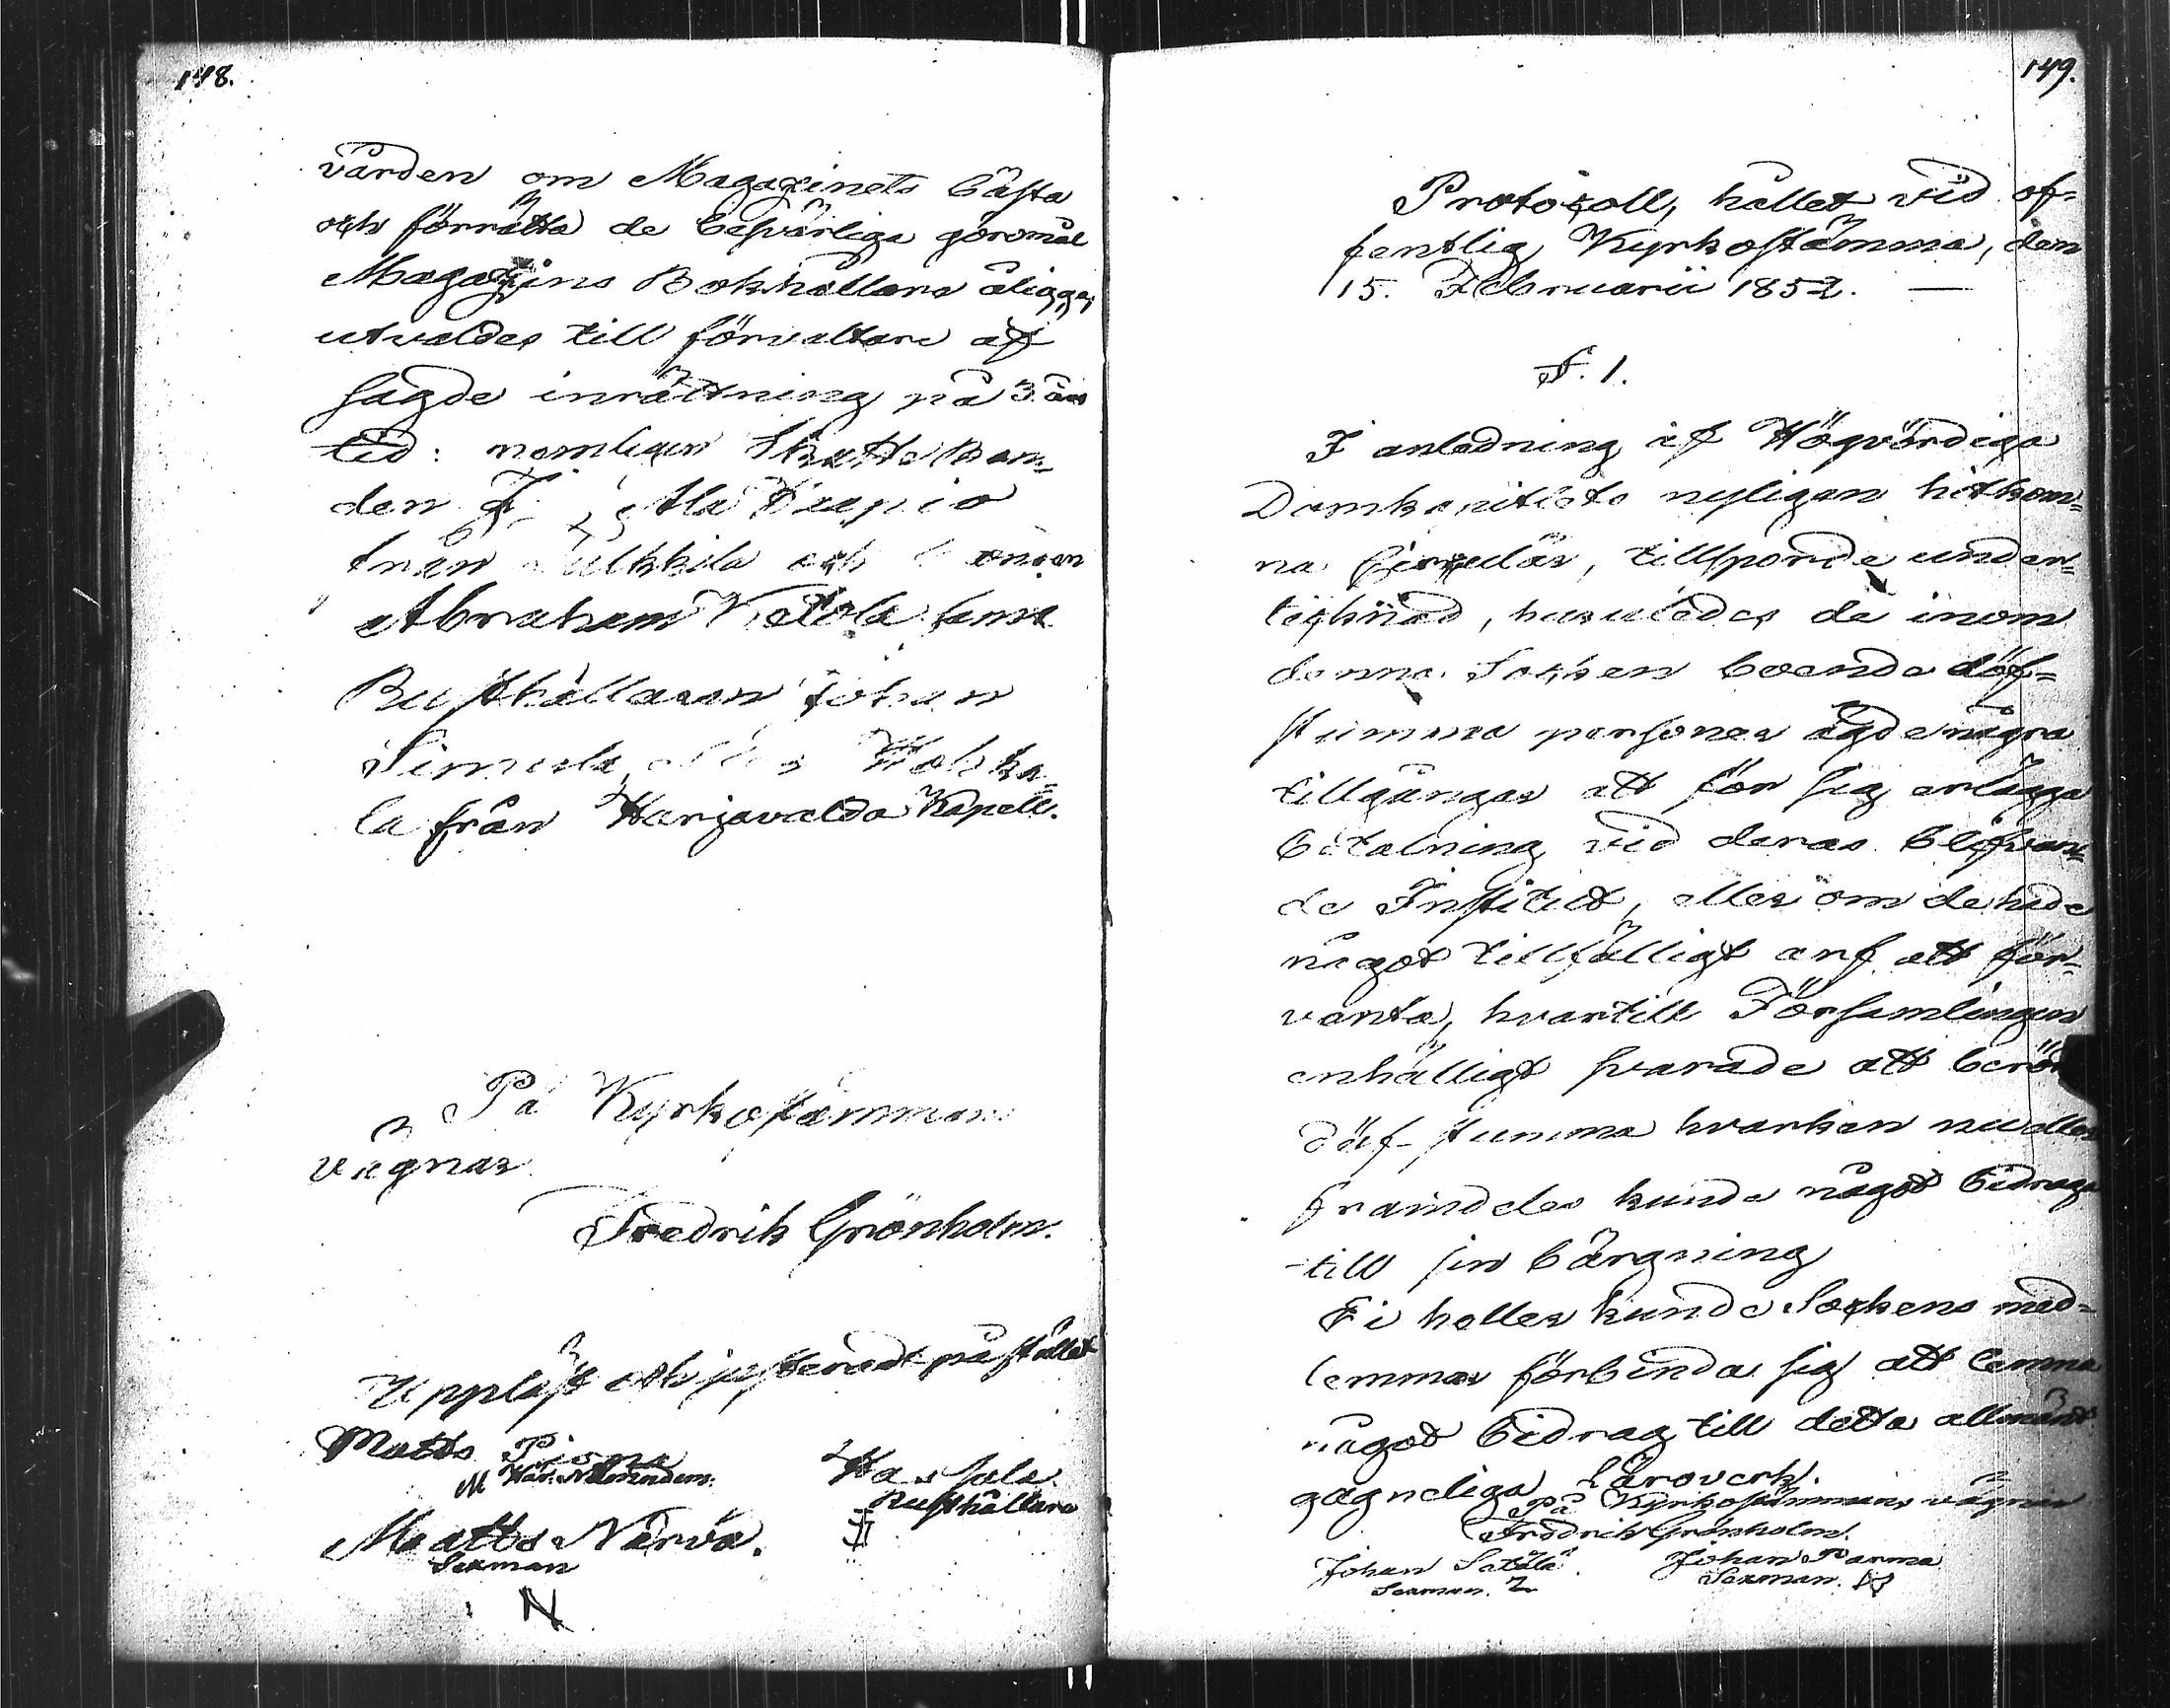 148.
vården om Magazinets bästa
och förrätta de besvärliga göromål
Magazins Bokhållare åligga,
utvaldes till förvaltare af
sagde inrättning på 3 års
tid: nemligen Skattebon=
den
från och
Abraham Ketola samt
Rusthållaren Johan
Simula
la från Harjavalda Kapell.
På Kyrkostämmans
vägnar
Fredrik Grönholm.
Uppläst och justeradt på stället
Matts Piona
M Här. Nämndem.
Rusthållare
Matts Närvä.
Sexman
N
149.
Protocoll, hållet vid of=
fentlig Kyrkostämma, den
15. Februarii 1852. —
§. 1.
I anledning af Högvördiga
Domkapitlets nyligen hitkom=
na Circulär, tillsporde under=
tecknad, huruledes de inom
denna Socken boende döf=
stumma personer ägde några
tillgångar att för sig erlägga
betalning vid deras blifvan=
de Institut, eller om de hade
något tillfälligt arf att för=
vänta, hvartill Församlingen
enhälligt svarade att berörde
döf-stumma hvarken nu eller
framdeles kunde något bidraga
till sin bärgning
Ei heller kunde Sockens med=
lemmar förbinda sig att lemna
något bidrag till detta allmänt
gagneliga Läroverk.
På Kyrkostämmans vägnar
Fredrik Grönholm.
Johan Sätälä. Johan Parma
Sexman. Sexman.